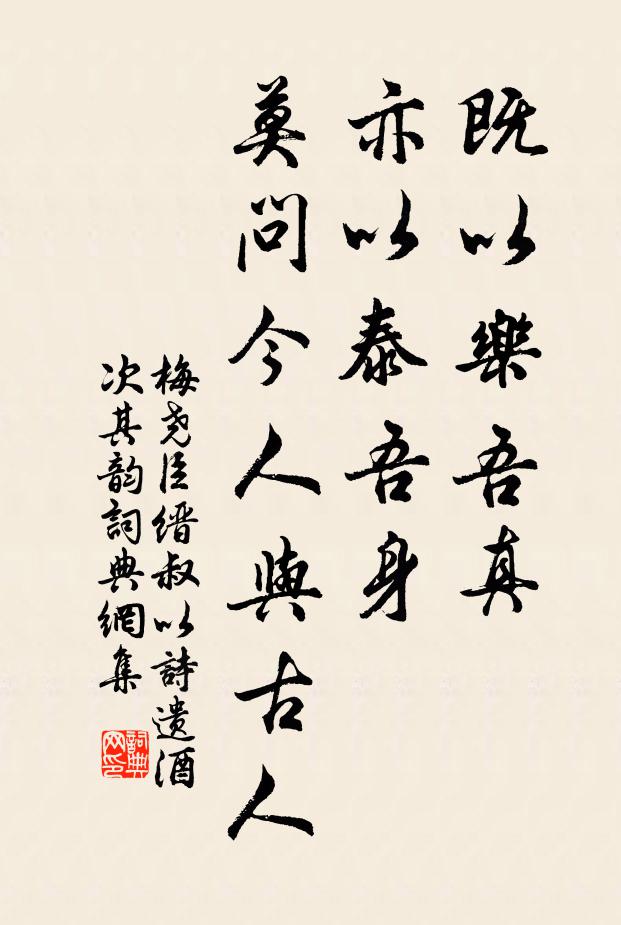 既以樂吾真
亦以泰吾身
莫問今人與古人
梅尧臣缙叔以詩遗酒
次其韵詞典網集
詞典
网印